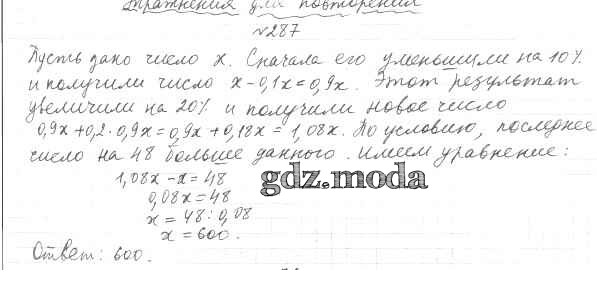 Упражнения для повторения
№287
Пусть дано число x. Сначала его уменьшили на 10%
и получили число x-0,1x=0,9x. Этот результат
увеличили на 20% и получили новое число
0,9x+0,2·0,9x=0,9x+0,18x=1,08x. По условию, последнее
число на 48 больше данного. Имеем уравнение:
1,08x-x=48
gdz.moda
0,08x=48
x=48:0,08
x=600.
Ответ: 600.